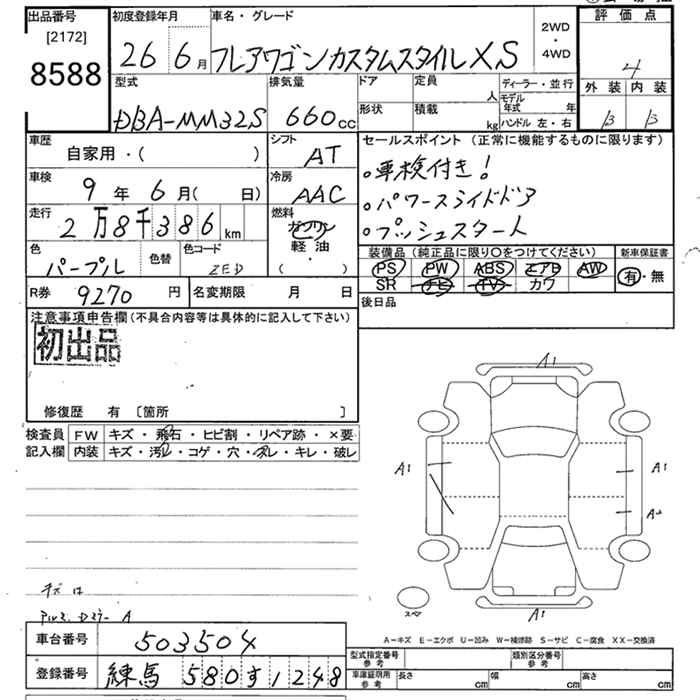 出品番号 初度登録年月 車名・グレード 2WD・4WD 評価点
[2172]
8588 26 6月 フレアワゴンカスタムスタイル XS 4
型式 排気量 ドア 定員 人 ディーラー・並行 外装 内装
DBA-MM32S 660cc 形状 積載 kg モデル年式 年 B B
ハンドル 左・右
車歴 シフト セールスポイント(正常に機能するものに限ります)
自家用・( ) AT 。車検付き!
車検 9年 6月( 日) 冷房 AAC 。パワースライドドア
走行 2万8千386km 燃料 ガソリン 。プッシュスタート
軽油
( )
色 パープル 色替 色コード ZED
装備品(純正品に限り〇をつけてください) 新車保証書
PS PW ABS エアB AW 有・無
SR ナビ TV カワ
R券 9270円 名変期限 月 日 後日品
注意事項申告欄(不具合内容等は具体的に記入して下さい)
初出品
修復歴 有 〔箇所 〕
検査員 FW キズ・飛石・ヒビ割・リペア跡・×要
記入欄 内装 キズ・汚レ・コゲ・穴・スレ・キレ・破レ
A1
A1 A1
A2
スペア A1
キズ は
A
A-キズ E-エクボ U-凹み W-補修跡 S-サビ C-腐食 XX-交換済
車台番号 503504
型式指定番号 参考 類別区分番号 参考
登録番号 練馬 580 す 1248
車庫証明用 参考 長さ cm 幅 cm 高さ cm